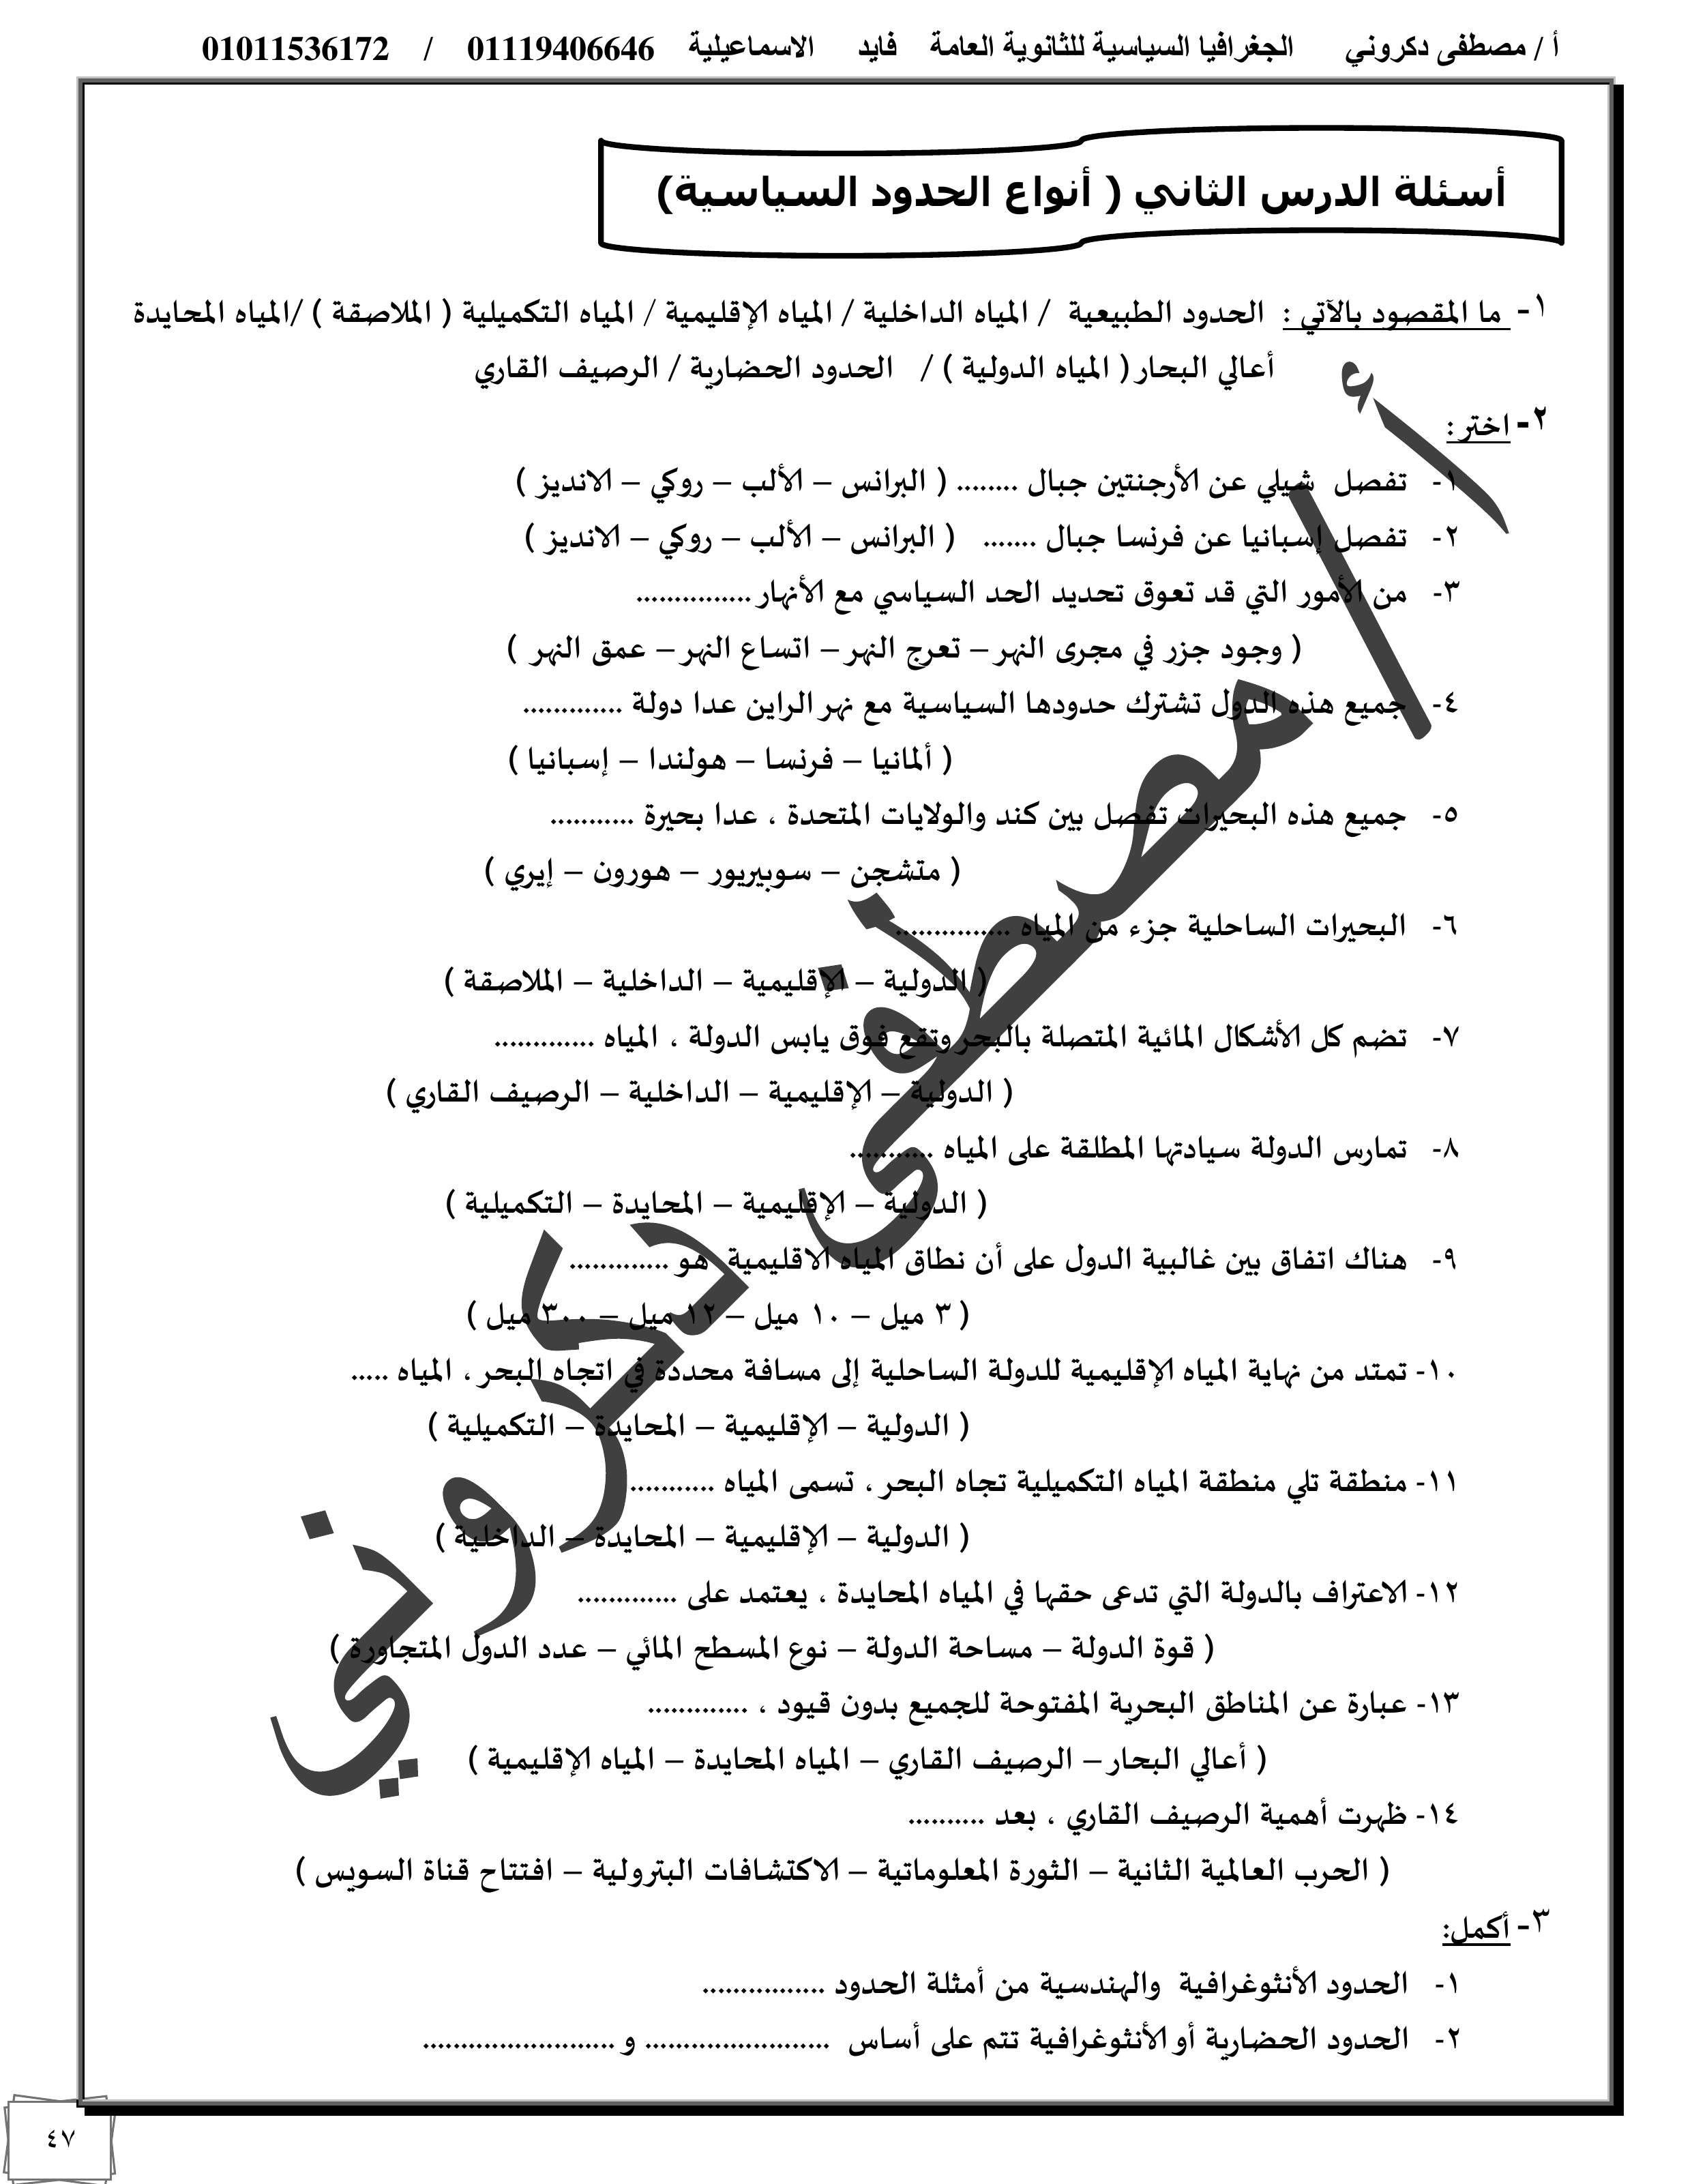 أ / مصطفى دكروني الجغرافيا السياسية للثانوية العامة فايد الاسماعيلية 01119406646 / 01011536172
أسئلة الدرس الثاني ( أنواع الحدود السياسية)
١- ما المقصود بالآتي : الحدود الطبيعية / المياه الداخلية / المياه الإقليمية / المياه التكميلية ( الملاصقة ) /المياه المحايدة
أعالي البحار ( المياه الدولية ) / الحدود الحضارية / الرصيف القاري
٢- اختر :
١- تفصل شيلي عن الأرجنتين جبال ........ ( البرانس – الألب – روكي – الانديز )
٢- تفصل إسبانيا عن فرنسا جبال ....... ( البرانس – الألب – روكي – الانديز )
٣- من الأمور التي قد تعوق تحديد الحد السياسي مع الأنهار ...............
( وجود جزر في مجرى النهر – تعرج النهر – اتساع النهر – عمق النهر )
٤- جميع هذه الدول تشترك حدودها السياسية مع نهر الراين عدا دولة .............
( ألمانيا – فرنسا – هولندا – إسبانيا )
٥- جميع هذه البحيرات تفصل بين كند والولايات المتحدة ، عدا بحيرة ...........
( متشجن – سوبيريور – هورون – إيري )
٦- البحيرات الساحلية جزء من المياه ...............
( الدولية – الإقليمية – الداخلية – الملاصقة )
٧- تضم كل الأشكال المائية المتصلة بالبحر وتقع فوق يابس الدولة ، المياه .............
( الدولية – الإقليمية – الداخلية – الرصيف القاري )
٨- تمارس الدولة سيادتها المطلقة على المياه ...........
( الدولية – الإقليمية – المحايدة – التكميلية )
٩- هناك اتفاق بين غالبية الدول على أن نطاق المياه الاقليمية هو .............
( ٣ ميل – ١٠ ميل – ١٢ ميل – ٣٠٠ ميل )
١٠- تمتد من نهاية المياه الإقليمية للدولة الساحلية إلى مسافة محددة في اتجاه البحر ، المياه .....
( الدولية – الإقليمية – المحايدة – التكميلية )
١١- منطقة تلي منطقة المياه التكميلية تجاه البحر ، تسمى المياه ...........
( الدولية – الإقليمية – المحايدة – الداخلية )
١٢- الاعتراف بالدولة التي تدعى حقها في المياه المحايدة ، يعتمد على .............
( قوة الدولة – مساحة الدولة – نوع المسطح المائي – عدد الدول المتجاورة )
١٣- عبارة عن المناطق البحرية المفتوحة للجميع بدون قيود ، .............
( أعالي البحار – الرصيف القاري – المياه المحايدة – المياه الإقليمية )
١٤- ظهرت أهمية الرصيف القاري ، بعد ..........
( الحرب العالمية الثانية – الثورة المعلوماتية – الاكتشافات البترولية – افتتاح قناة السويس )
٣- أكمل:
١- الحدود الأنثوغرافية والهندسية من أمثلة الحدود ................
٢- الحدود الحضارية أو الأنثوغرافية تتم على أساس ........................ و .........................
٤٧
أ / مصطفى دكروني